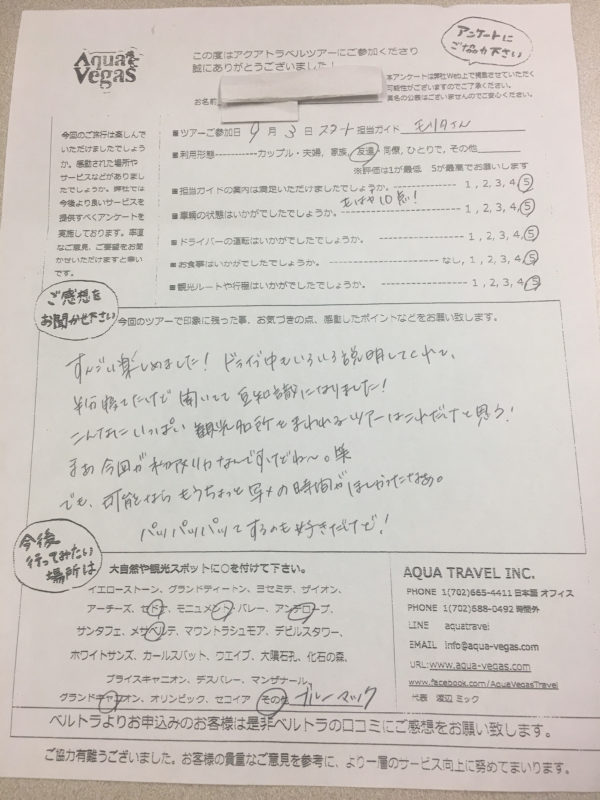 Aqua Vegas
この度はアクアトラベルツアーにご参加くださり
誠にありがとうございました!
アンケートに
ご協力下さい
本アンケートは弊社Web上で掲載させていただく
可能性がございますのでご了承ください。
実名の公表はございませんのでご安心ください。
お名前
今回のご旅行は楽しんで
いただけましたでしょう
か。感動された場所や
サービスなどがありまし
たでしょうか。弊社では
今後より良いサービスを
提供すべくアンケートを
実施しております。率直
なご意見、ご要望をお聞
かせいただけますと幸い
です。
■ツアーご参加日 9 月 3 日スタート 担当ガイド
■利用形態------------カップル・夫婦, 家族, 友達, 同僚, ひとりで, その他
※評価は1が最低 5が最高でお願いします
■担当ガイドの案内は満足いただけましたでしょうか。 1 , 2, 3, 4, 5
もはや10点!
■車輌の状態はいかがでしたでしょうか。 1 , 2, 3, 4, 5
■ドライバーの運転はいかがでしたでしょうか。 1 , 2, 3, 4, 5
■お食事はいかがでしたでしょうか。 なし, 1 , 2, 3, 4, 5
■観光ルートや行程はいかがでしたでしょうか。 1 , 2, 3, 4, 5
ご感想を
お聞かせ下さい
今回のツアーで印象に残った事、お気づきの点、感動したポイントなどをお願い致します。
すんごい楽しめました! ドライブ中もいろいろ説明してくれて、
半分寝てたけど 聞いてて 豆知識になりました!
こんなにいっぱい 観光名所をまわれるツアーはこれだけと思う!
まあ今回が初アメリカなんですけどね〜。笑
でも、可能なら もうちょっと 写メの時間がほしかったなぁ。
パッパッパッてするのも好きだけど!
今後
行ってみたい
場所は
大自然や観光スポットに○を付けて下さい。
イエローストーン、グランドティートン、ヨセミテ、ザイオン、
アーチーズ、セドナ、モニュメントバレー、アンテロープ、
サンタフェ、メサベルデ、マウントラシュモア、デビルスタワー、
ホワイトサンズ、カールスバット、ウエイブ、大隕石孔、化石の森、
ブライスキャニオン、デスバレー、マンザナール、
グランドキャニオン、オリンピック、セコイア その他 ブルーマック
AQUA TRAVEL INC.
PHONE 1(702)665-4411 日本語 オフィス
PHONE 1(702)688-0492 時間外
LINE aquatravel
EMAIL info@aqua-vegas.com
URL:www.aqua-vegas.com
www.facebook.com/AquaVegasTravel
代表 渡辺 ミック
ベルトラよりお申込みのお客様は是非ベルトラの口コミにご感想をお願い致します。
ご協力有難うございました。お客様の貴重なご意見を参考に、より一層のサービス向上に努めてまいります。